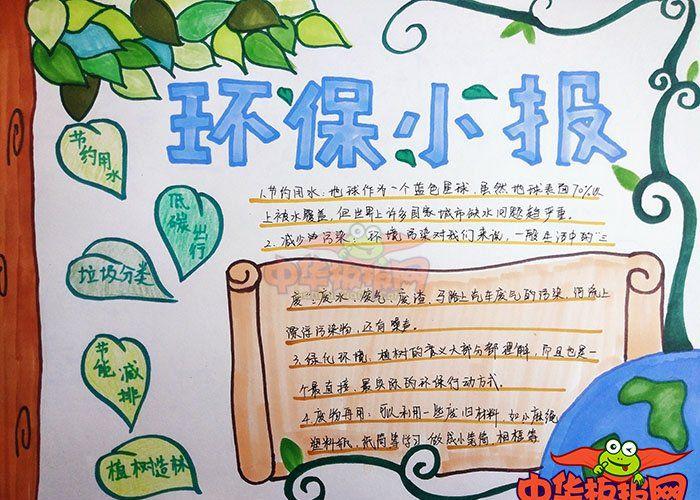 环保小报
节约用水
低碳出行
垃圾分类
节能减排
植树造林
1.节约用水:地球作为一个蓝色星球,虽然地球表面70%以
上被水覆盖,但世界上许多国家城市缺水问题趋严重。
2.减少污染:环境污染对我们来说,一般生活中的"三
废":废水、废气、废渣,马路上汽车废气的污染,河流上
漂浮污染物,还有噪声。
3.绿化环境:植树的意义大部分都理解,而且也是一
个最直接、最实际的环保行动方式。
4.废物再用:可以利用一些废旧材料,如小麻绳
塑料纸、纸筒等学习做成小笔筒、相框等
中华手抄报网
中华手抄报网